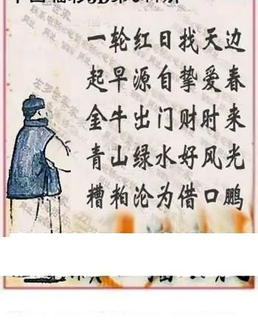 一轮红日找天边
起早源自挚爱春
金牛出门财时来
青山绿水好风光
糟粕沦为借口鹏